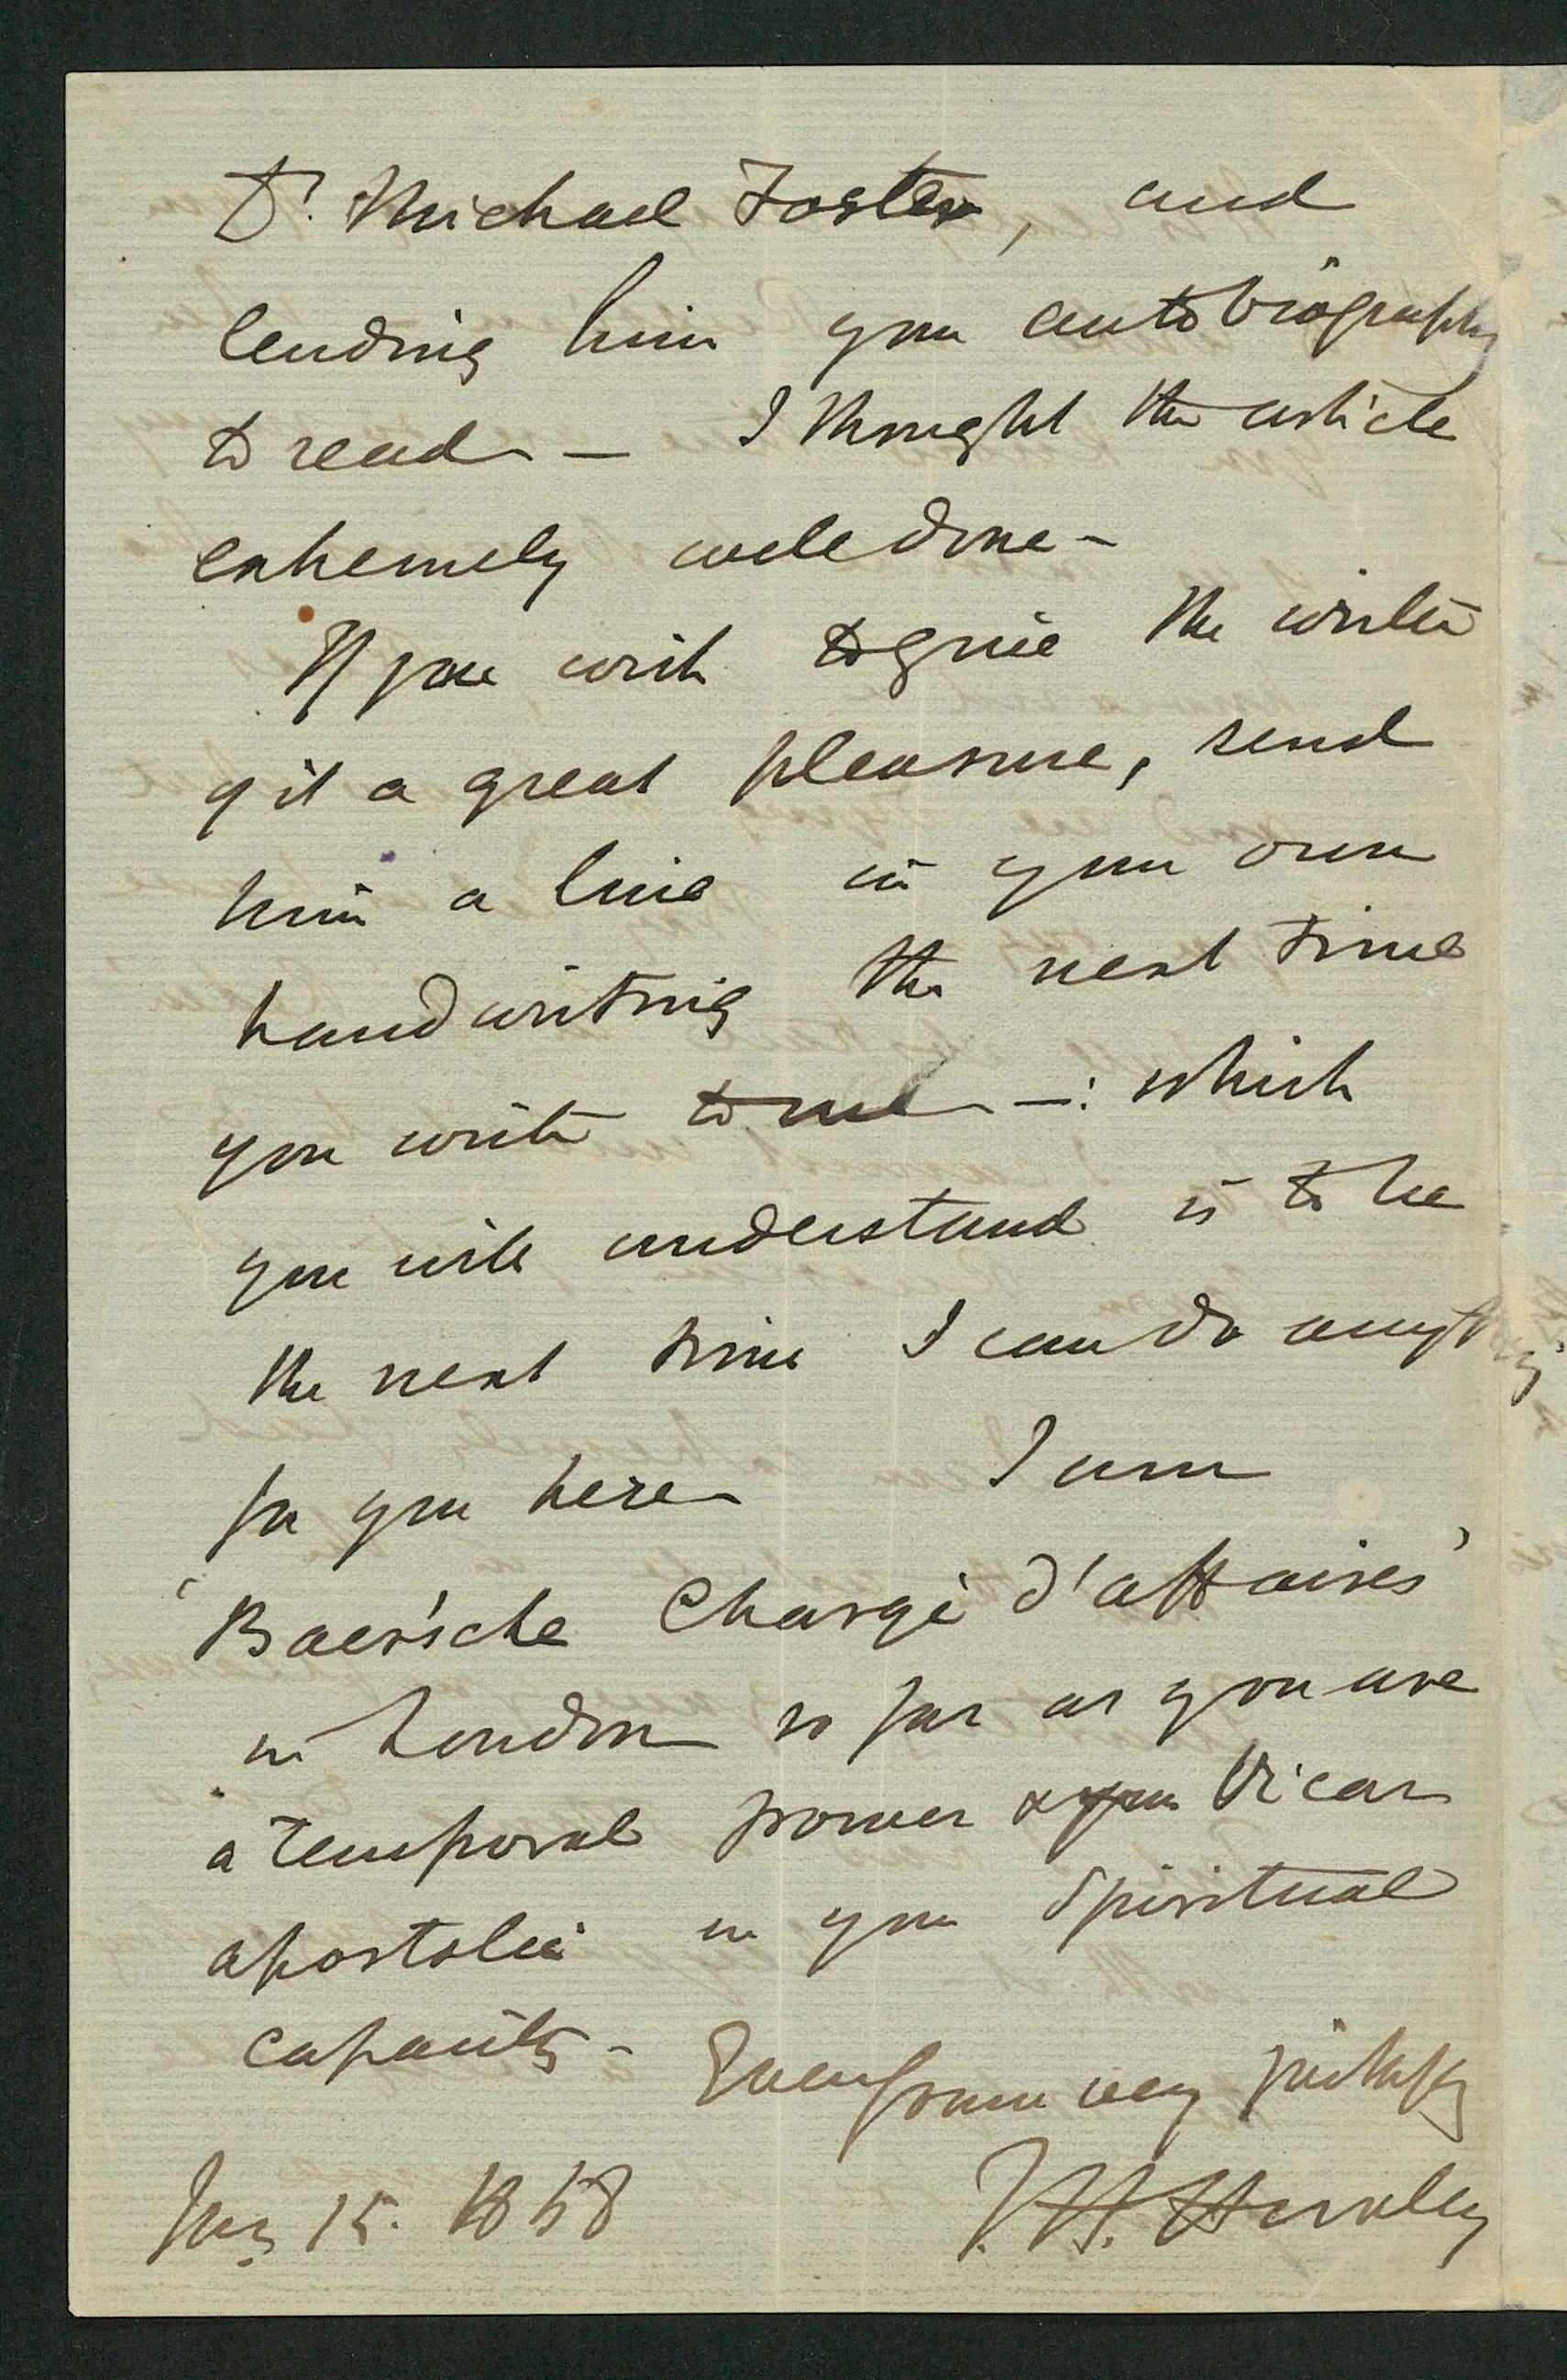 Dr. Michael Foster, and
lending him your autobiography
to read – I thought the article
extremely well done –
If you wish to give the writer
of it a great pleasure, send
him a line in your own
handwriting the next time
you write to me –: which
you will understand is to be
the next time I can do anything
for you here – I am
'Baer'sche Chargé d'affaires'
in London so far as you are
a temporal power & your Vicar
apostolic in your Spiritual
capacity –
Ever yours very faithfully
Jany 15. 1868
T. H. Huxley